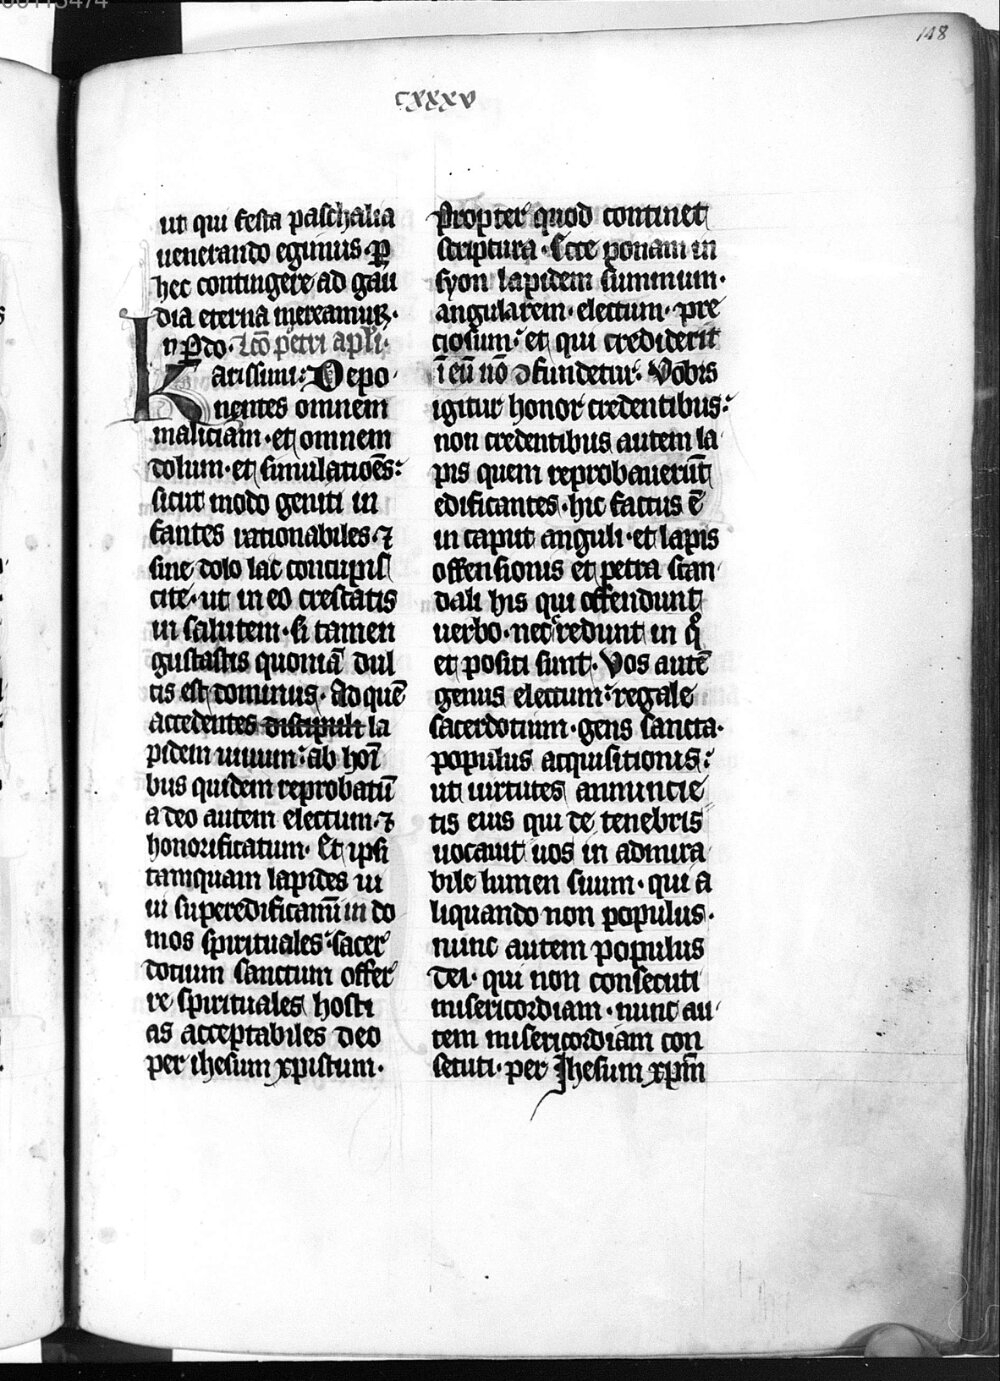 148
cxxxv
ut qui festa paschalia
uenerando egimus · ꝑ
hec contingere ad gau
dia eterna mereamur ·
Lc̄o petri apl̄i ·
Karissimi : Depo
nentes omnem
maliciam · et omnem
dolum · et simulatiōes :
sicut modo geniti in
fantes rationabiles · ⁊
sine dolo lac concupis
cite · ut in eo crescatis
in salutem · si tamen
gustastis quoniā dul
cis est dominus · Ad quē
accedentes discipuli la
pidem uiuum : ab hoī
bus quidem reprobatū
a deo autem electum · ⁊
honorificatum · Et ipsi
tamquam lapides ui
ui superedificamī in do
mos spirituales : sacer
dotium sanctum offer
re spirituales hosti
as acceptabiles deo
per ihesum xpistum ·
Propter quod continet
scriptura · Ecce ponam in
syon lapidem summum ·
angularem · electum · pre
ciosum : et qui crediderit
ī eū nō ↄfundetur · Vobis
igitur honor credentibus :
non credentibus autem la
pis quem reprobauerūt
edificantes · hic factus ē
in caput anguli · et lapis
offensionis et petra scan
dali his qui offendunt
uerbo · nec credunt in q̊
et positi sunt · Vos autē
genus electum : regale
sacerdotium · gens sancta ·
populus acquisitionis :
ut uirtutes annuncie
tis eius qui de tenebris
uocauit uos in admira
bile lumen suum · qui a
liquando non populus ·
nunc autem populus
dei · qui non consecuti
misericordiam · nunc au
tem misericordiam con
secuti · per Ihesum xp̄m